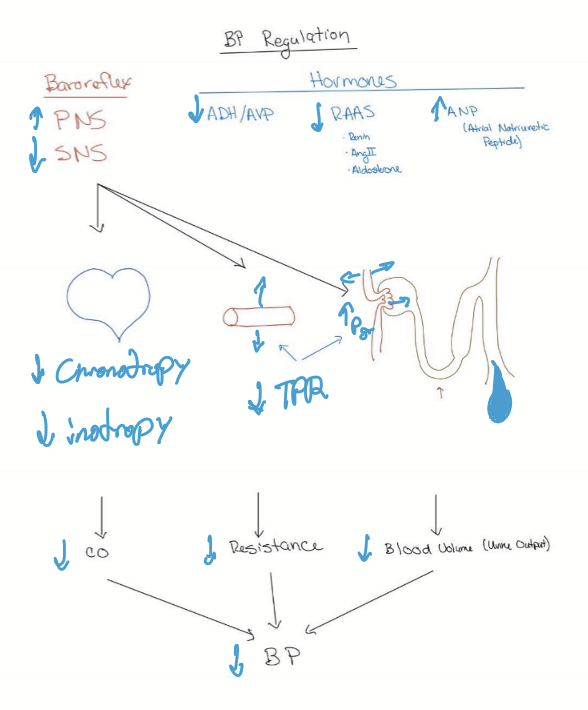 BP Regulation
Baroreflex
↑ PNS
↓ SNS
Hormones
↓ ADH/AVP
↓ RAAS
· Renin
· AngII
· Aldosterone
↑ ANP
(Atrial Natriuretic
Peptide)
↓ Chronotropy
↓ inotropy
↓ TPR
↑ Pgr
↓ CO
↓ Resistance
↓ Blood Volume (Urine Output)
↓ BP